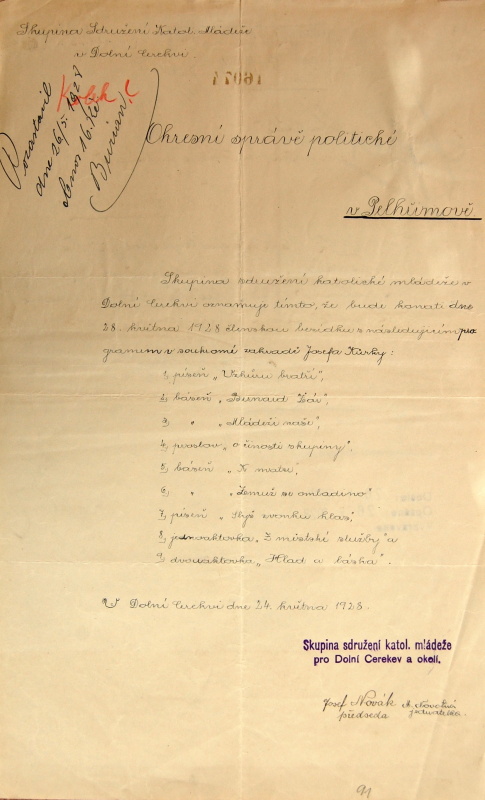 Skupina Sdružení Katol. Mládeže
v Dolní Cerekvi
16071
Kolek
dne 26/5 1928
Burian
Okresní správě politické
v Pelhřimově
Skupina sdružení katolické mládeže v
Dolní Cerekvi oznamuje tímto, že bude konati dne
28. května 1928 členskou besídku s následujícím pro
gramem v soukromé zahradě Josefa Kůrky:
1, píseň „Vzhůru bratři",
2, báseň „
3, " „Mládeži naší",
4, proslov „o činosti skupiny".
5, báseň „K matce",
6, " „Čemuž se omladino"
7, píseň „Slyš zvonku hlas,
8, jednoaktovka „Z městské služby" a
9, dvouaktovka „Hlad a láska".
V Dolní Cerekvi dne 24. května 1928.
Skupina sdružení katol. mládeže
pro Dolní Cerekev a okolí.
Josef Novák
předseda jednatelka.